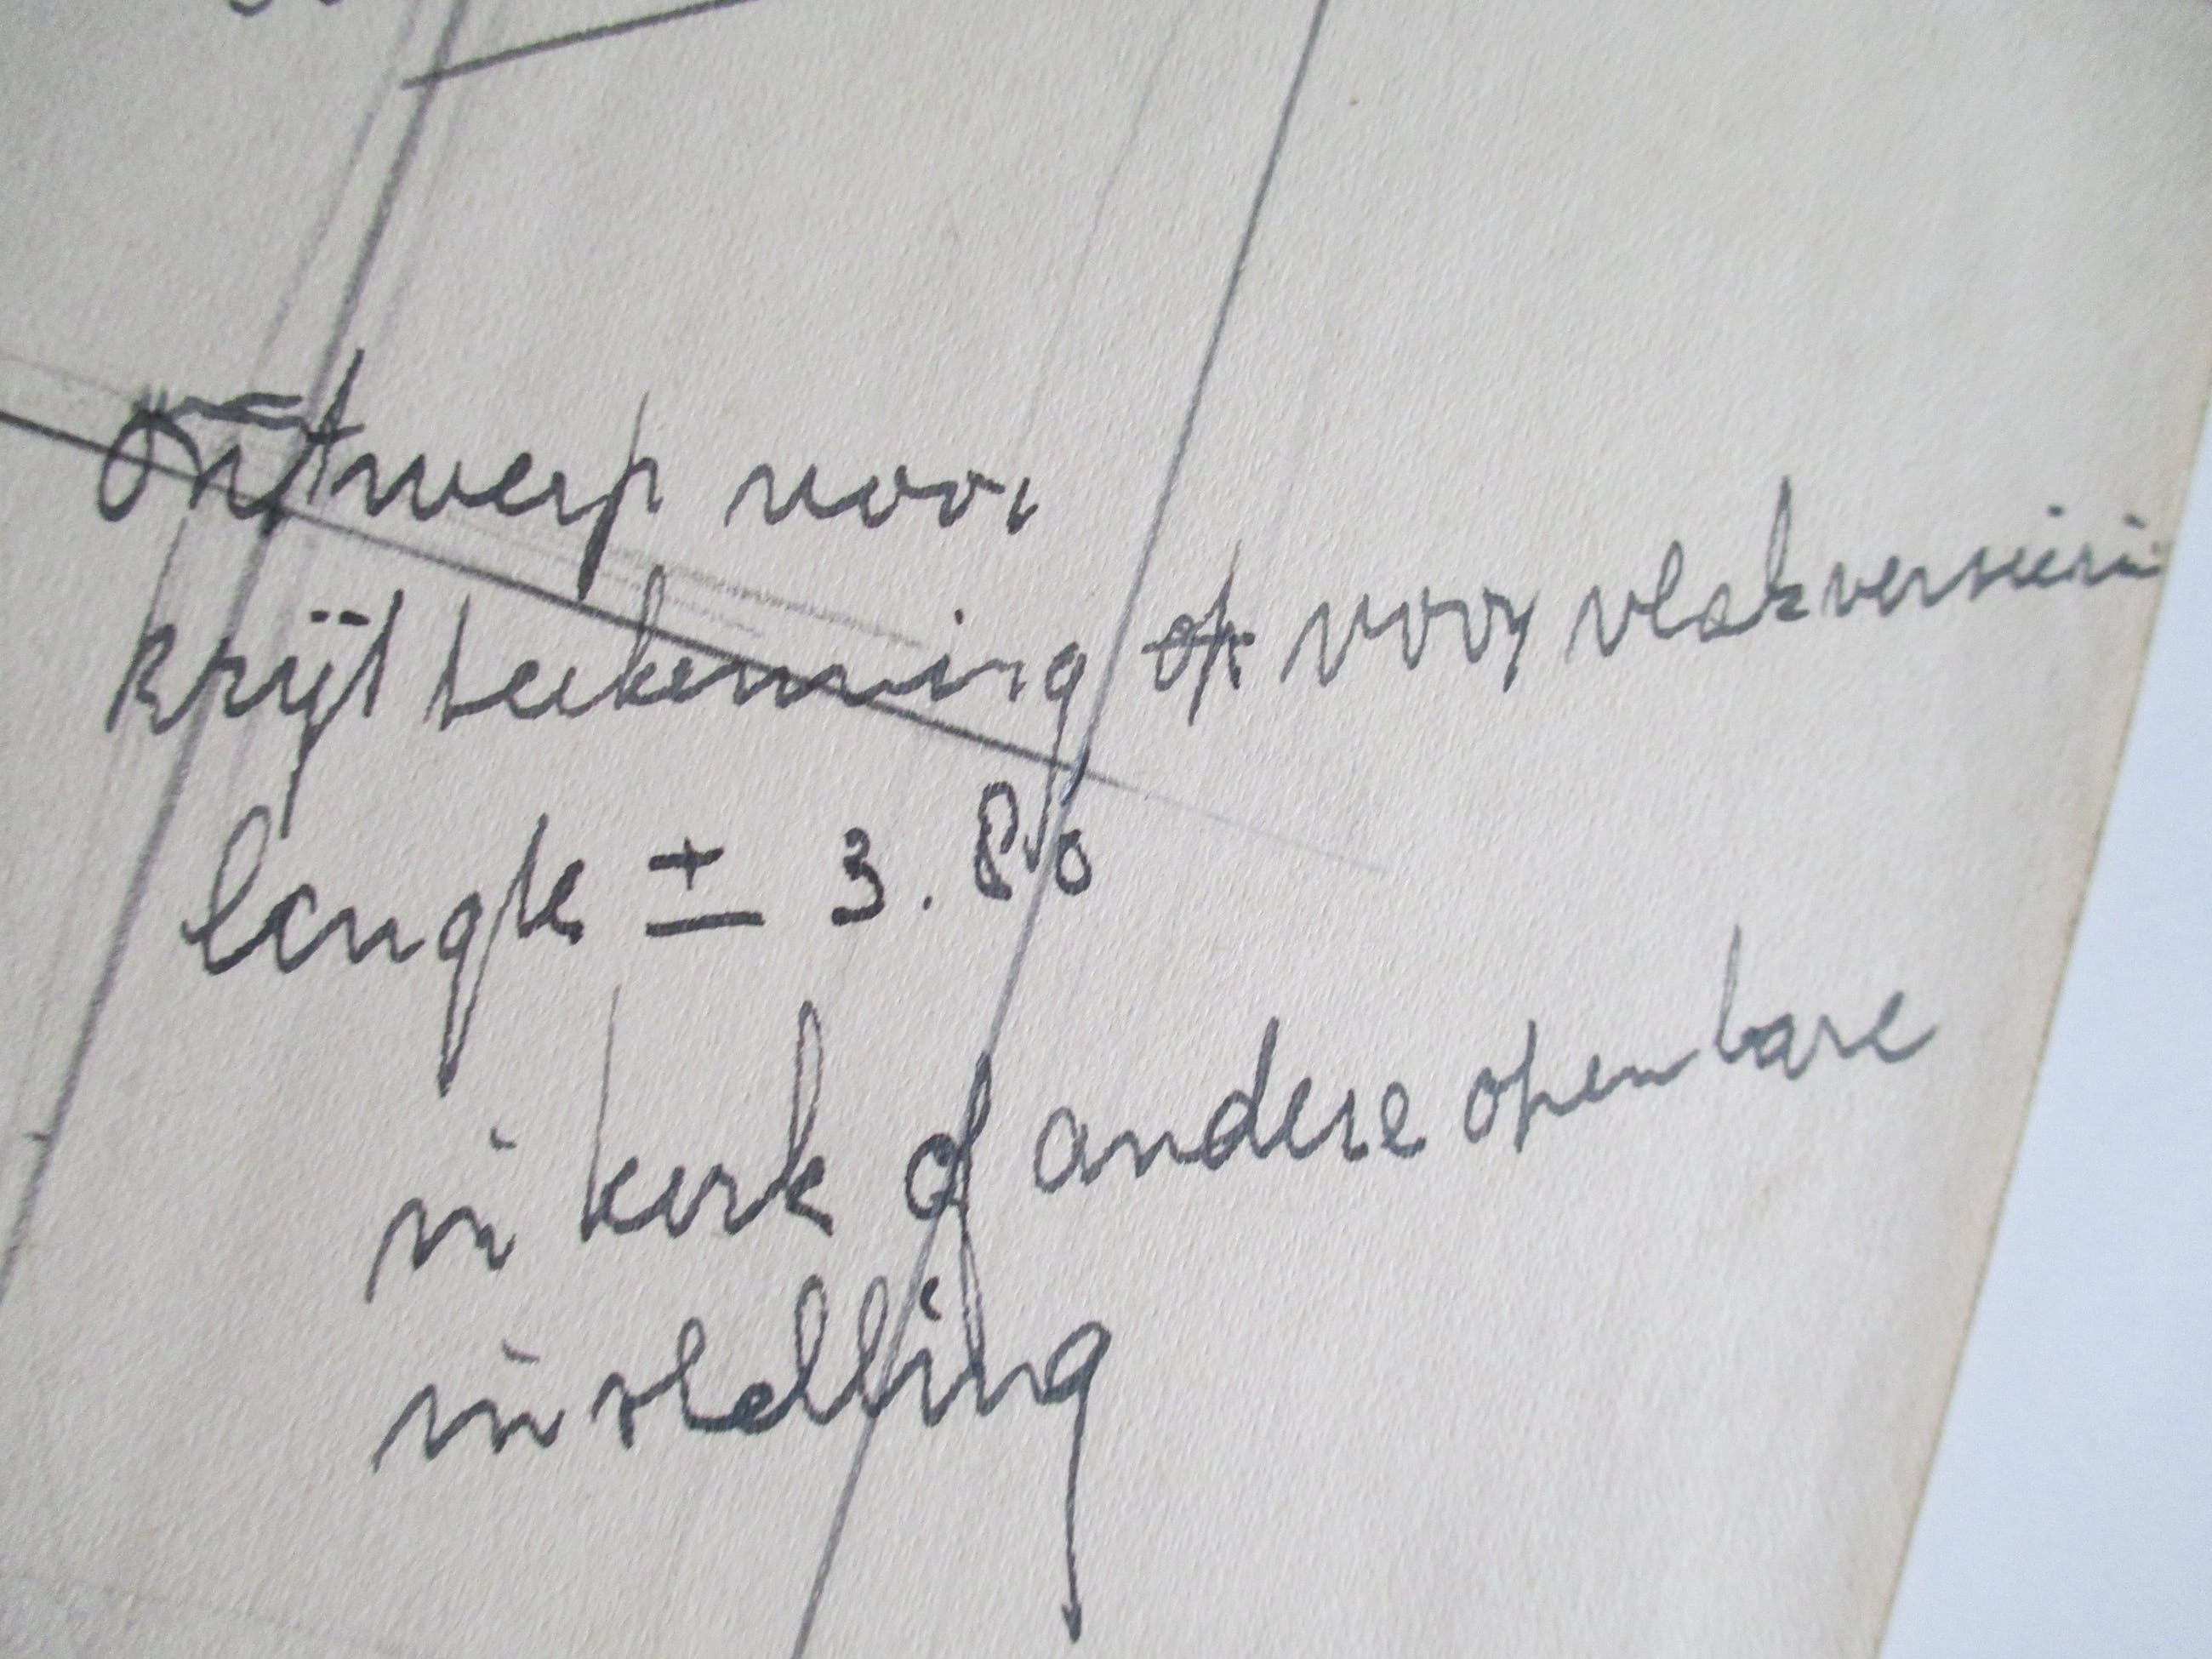 Ontwerp voor
krijt teekenning of voor vlakversierin
lengte ± 3.80
in kerk of andere openbare
instelling